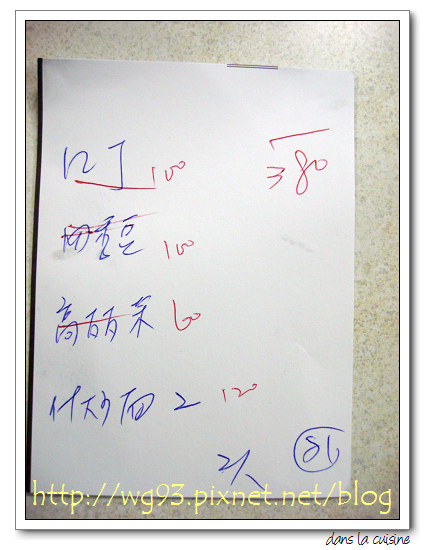 100 380
四季豆 100
高丽菜 60
什炒面 2 120
2人 81
http://wg93.pixnet.net/blog
dans la cuisine